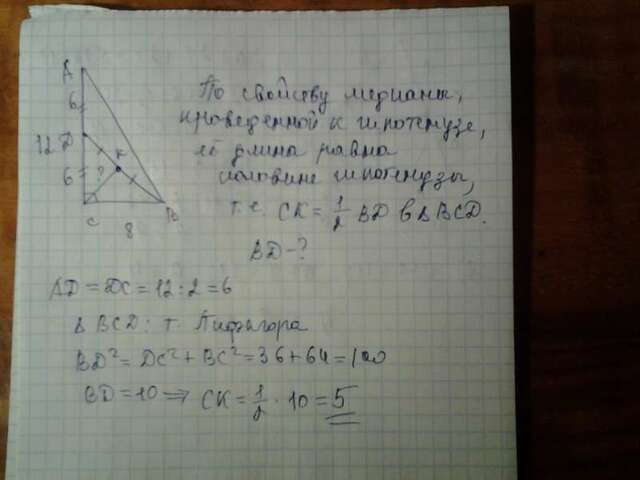 A
6
12 D
K
6 ?
C
B
8
По свойству медианы,
проведенной к гипотенузе,
её длина равна
половине гипотенузы,
т.е. CK = 1/2 BD в Δ BCD.
BD - ?
AD = DC = 12 : 2 = 6
Δ BCD : т. Пифагора
BD² = DC² + BC² = 36 + 64 = 100
BD = 10 ⇒ CK = 1/2 · 10 = 5